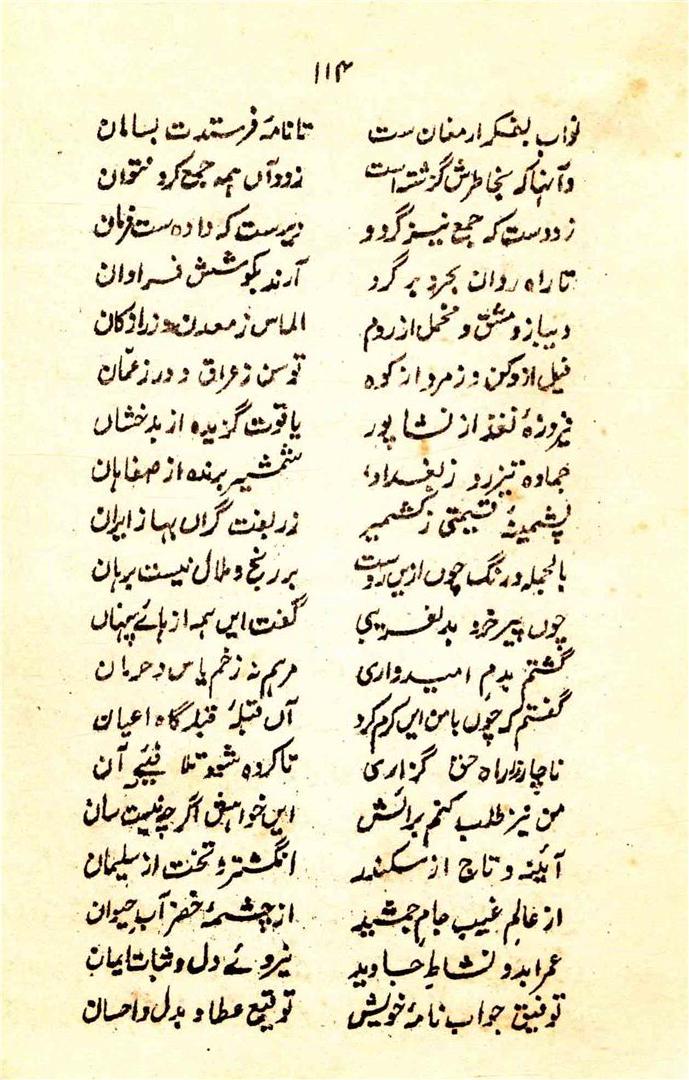 ۱۱۴
نواب بفکر ارمغان ست تا نامهٔ فرستدت بسامان
وآنها که بخاطرش گزشته است زود آں ہمہ جمع کرد نتوان
زود ست که جمع نیز گردو دیرست که داده ست فرمان
تا راه روان بحر و بر گرد آرند بکوشش فراوان
دیبا ز دمشق و مخمل از روم الماس ز معدن و زر از کان
فیل از دکن و زمرد از کوه توسن ز عراق و در ز عمّان
فیروزهٔ نغز از نشاپور یاقوت گزیده از بدخشاں
جمازه تیز رو ز بغداد شمشیر برنده از صفاہان
پشمینهٔ قیمتی ز کشمیر زر بفت گراں بہا ز ایران
بالجمله درنگ چوں ازیں روست بر رنج و ملال نیست برہان
چوں پیر خرد بدلفریبی گفت ایں ہمہ از ہائے پنہاں
گشتم بدم امیدواری مرہم نہ زخم یاس و حرمان
گفتم کہ چوں با من ایں کرم کرد آں قبلهٔ قبلہ گاہ اعیان
ناچار ز راہ حق گزاری تا کردہ شود تلافئیے آن
من نیز طلب کنم برائش ایں خواہش اگرچہ نیست سان
آئینه و تاج از سکندر انگشتر و تخت از سلیمان
از عالم غیب جام جمشید از چشمهٔ خضر آب حیوان
عمر ابد و نشاط جاوید نیروئے دل و ثبات ایمان
توفیق جواب نامهٔ خویش توقیع عطا و بذل و احسان